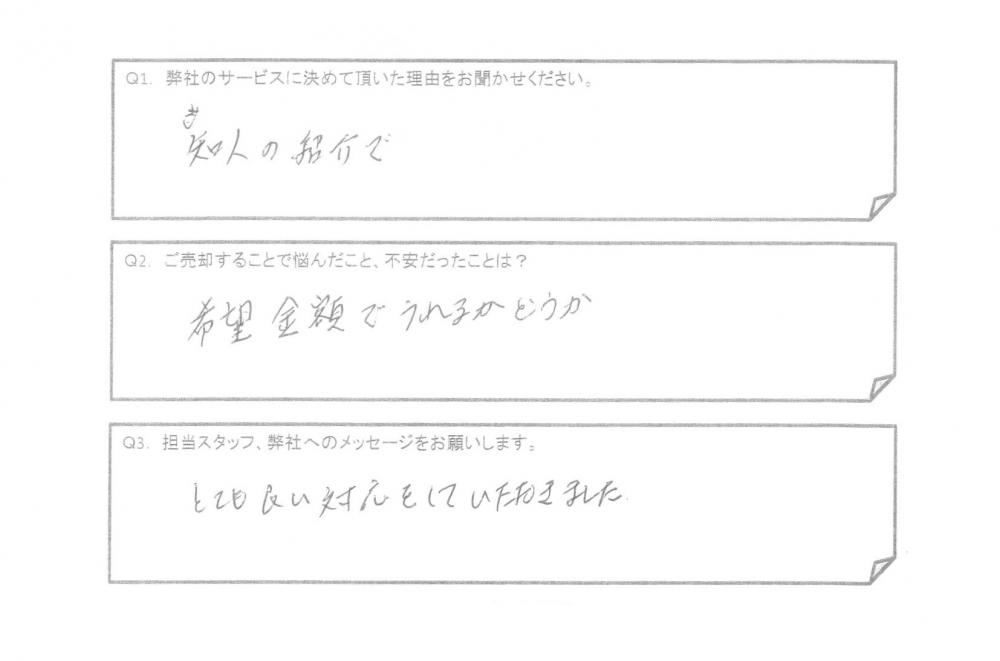 Q1. 弊社のサービスに決めて頂いた理由をお聞かせください。
知人の紹介で
Q2. ご売却することで悩んだこと、不安だったことは？
希望金額でうれるかどうか
Q3. 担当スタッフ、弊社へのメッセージをお願いします。
とても良い対応をしていただきました